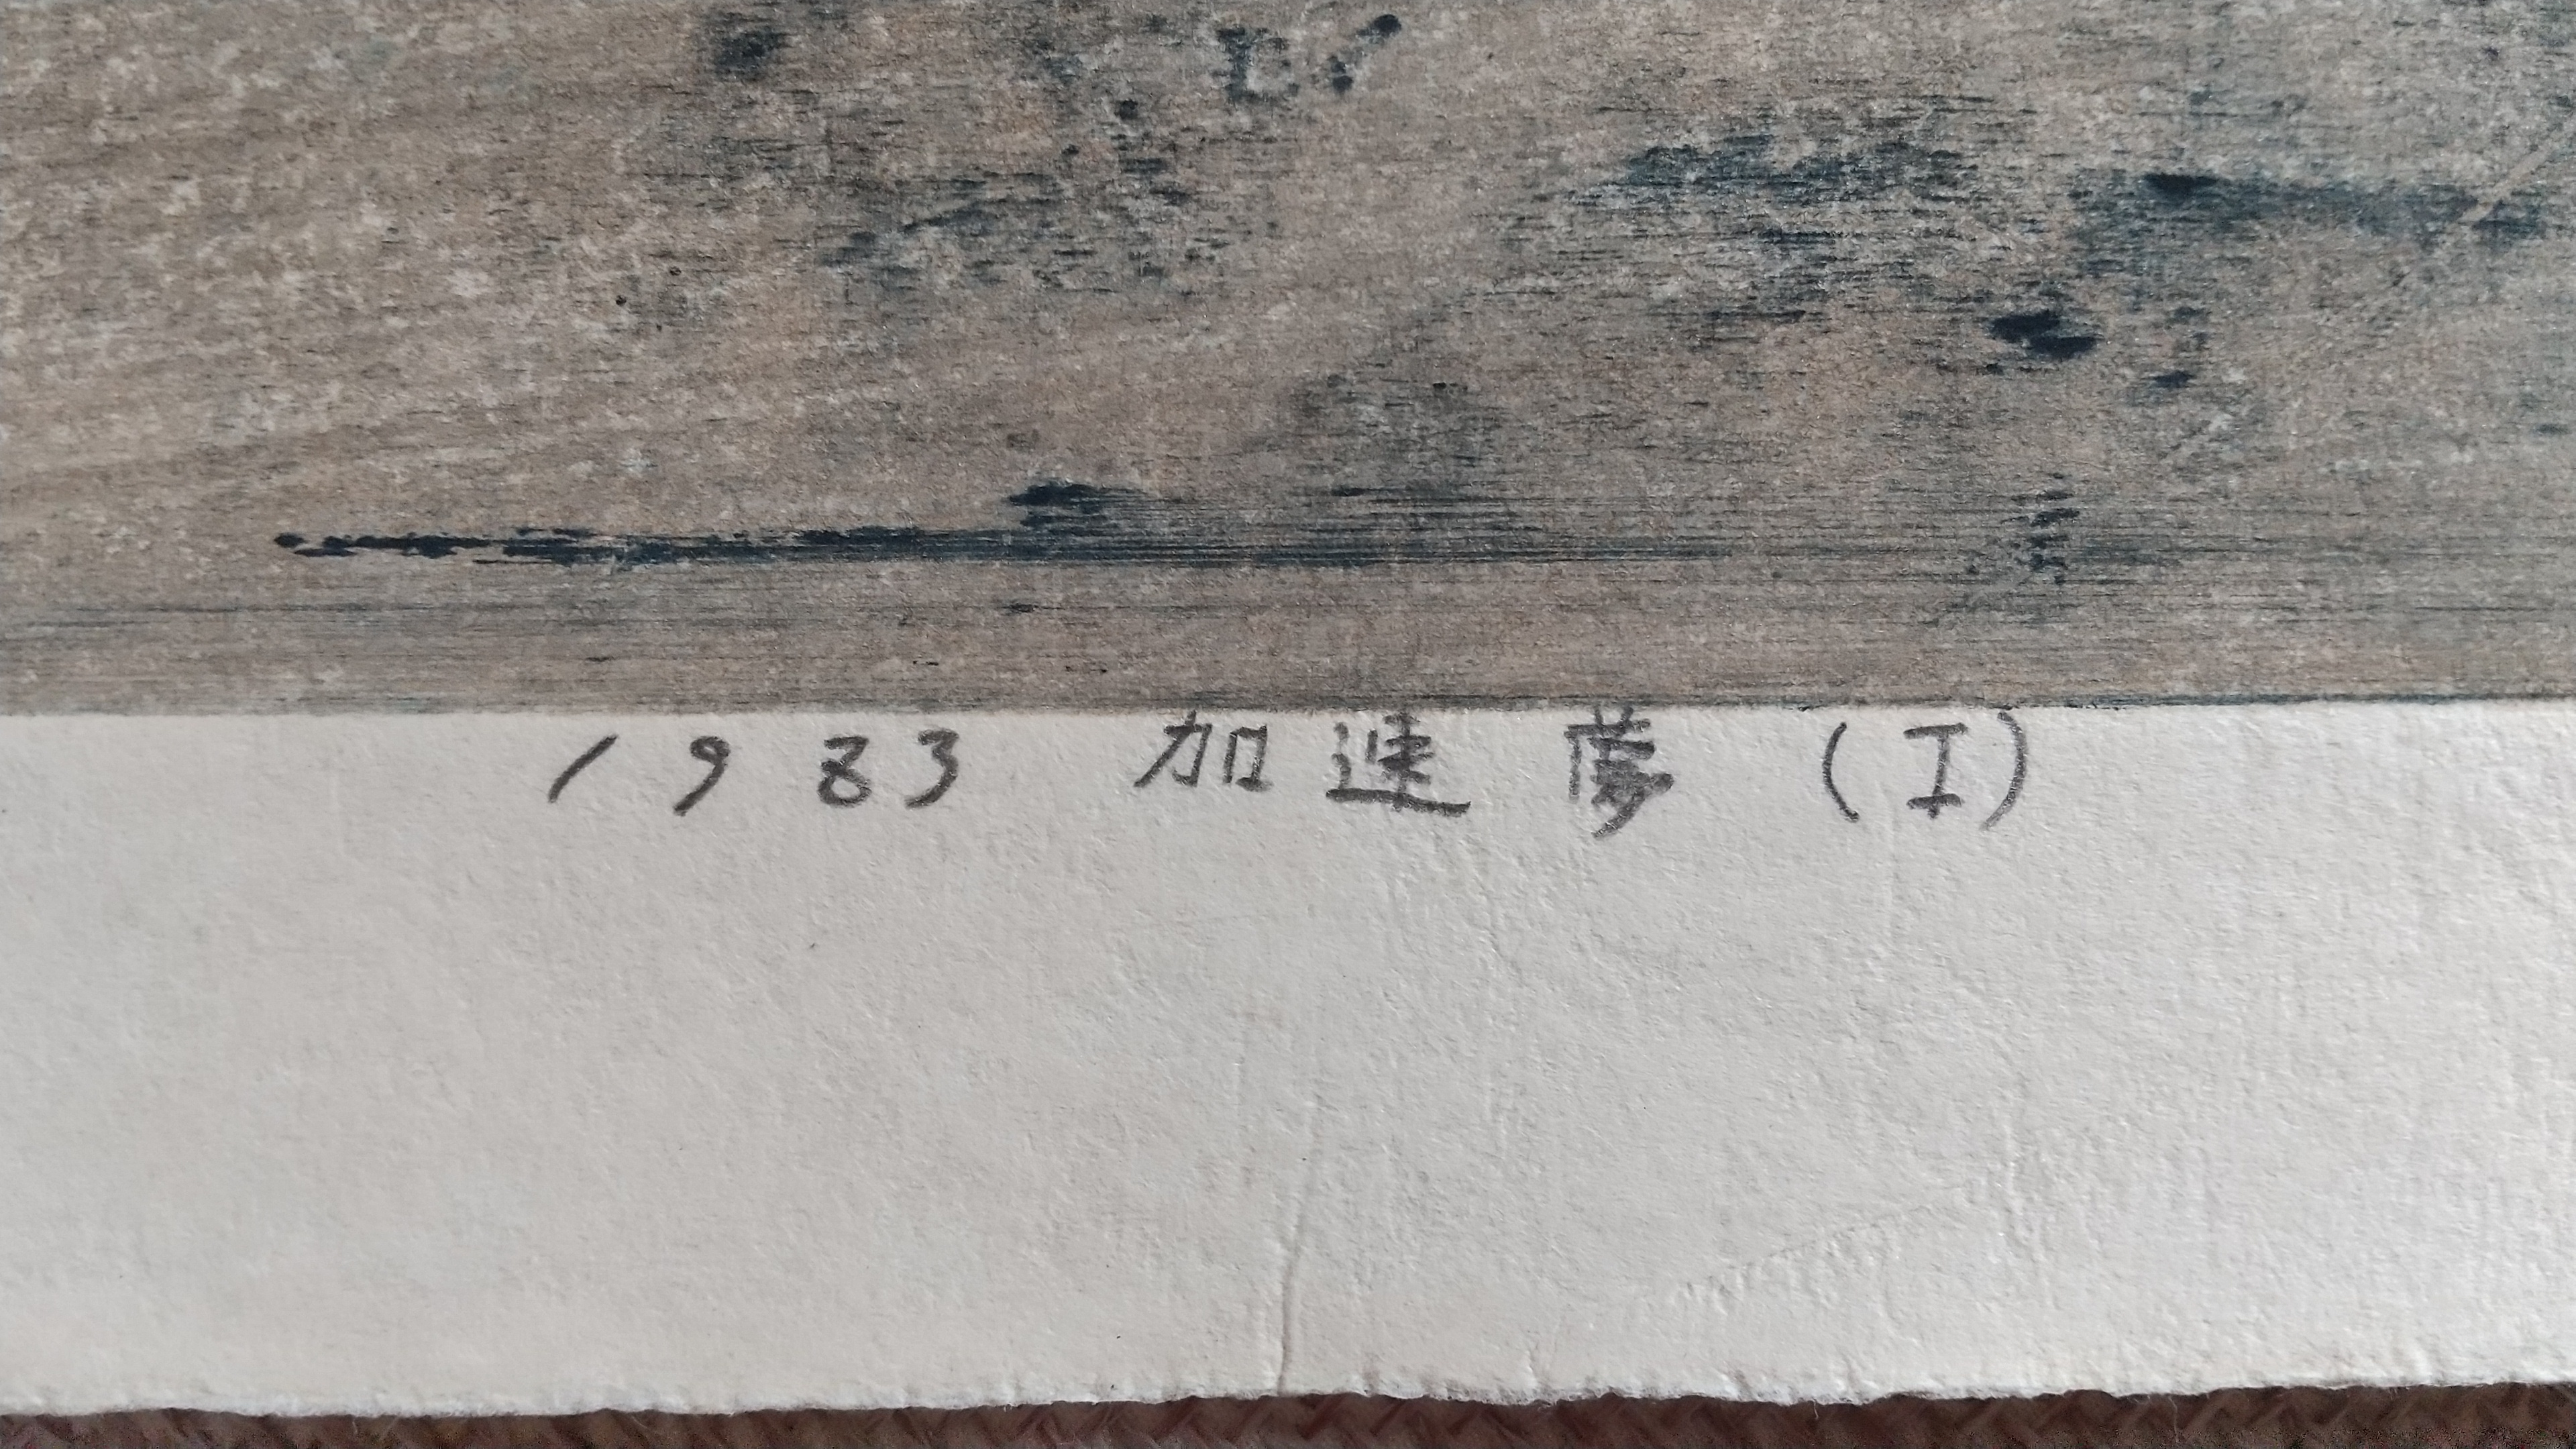 1983 加速夢 (I)